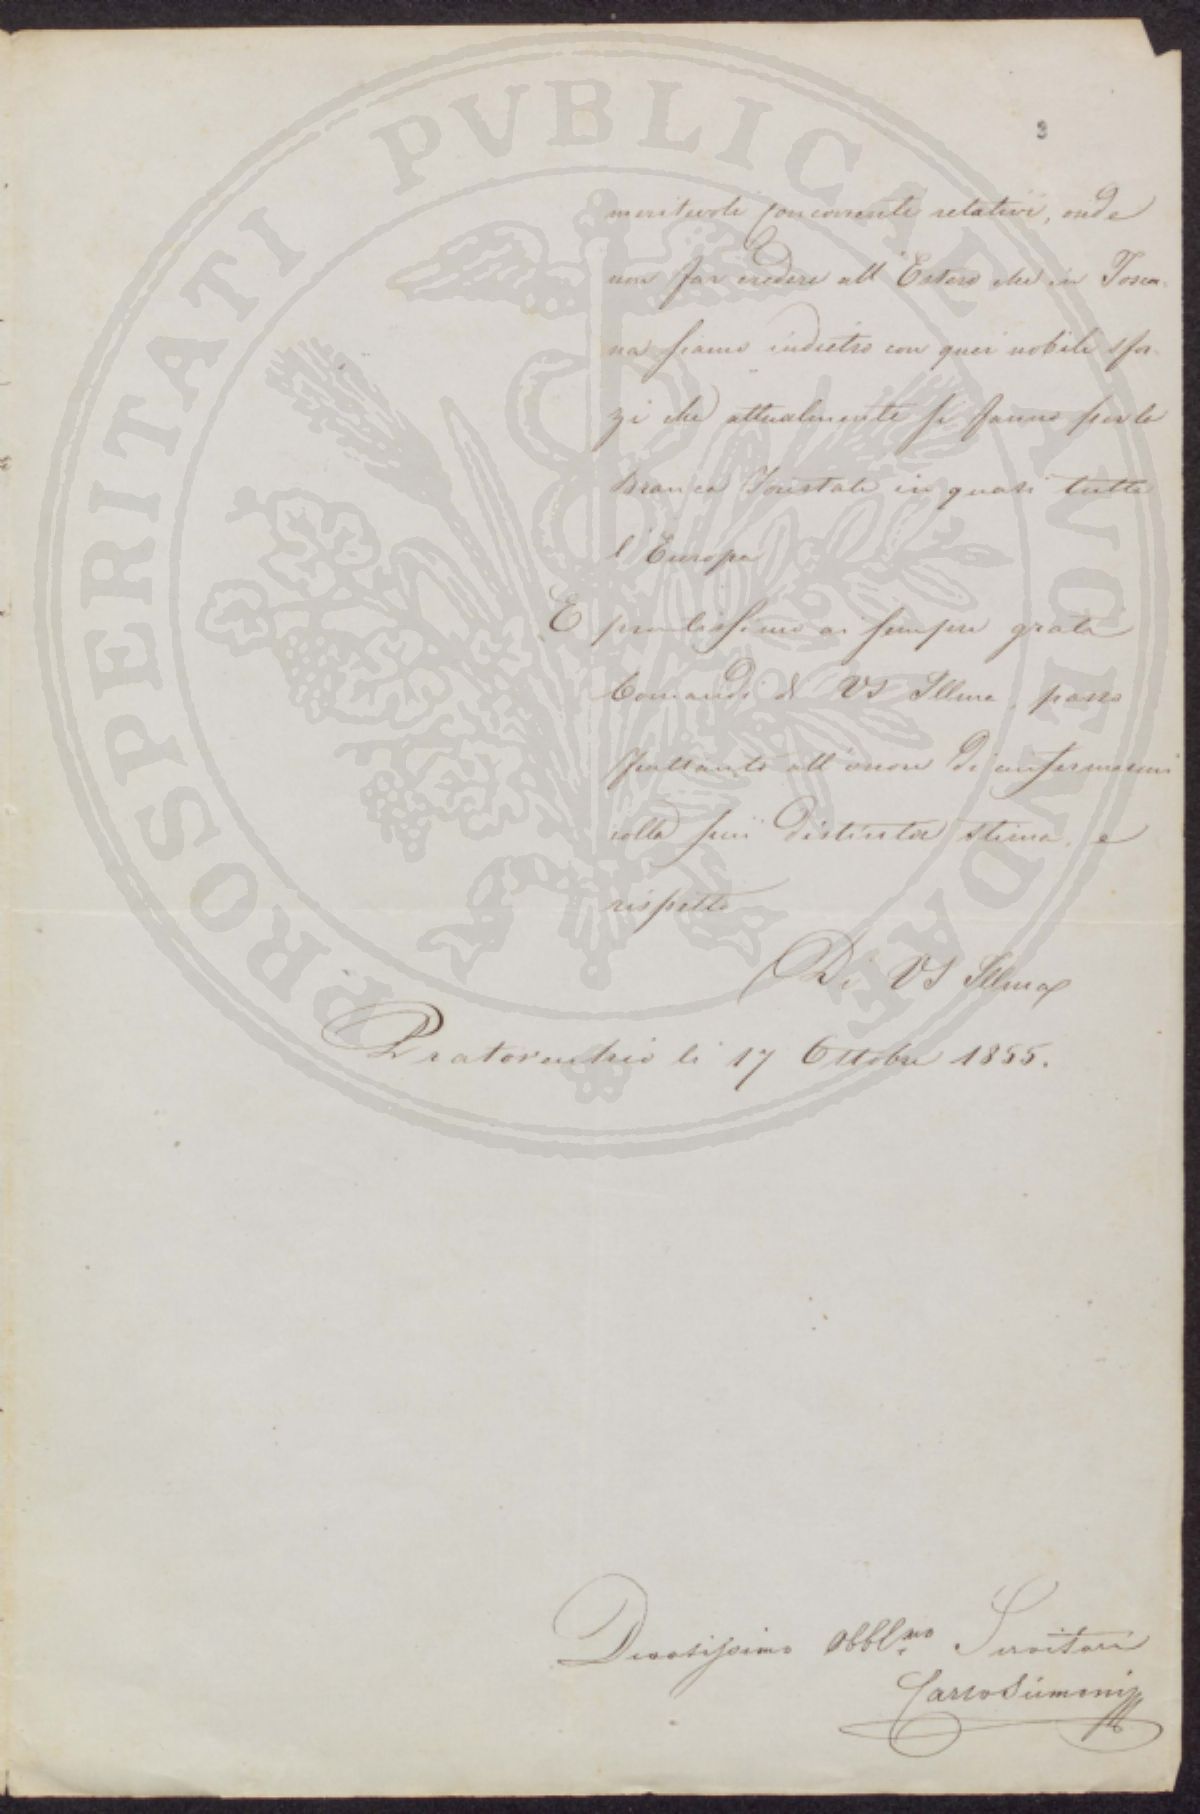 PROSPERITATI PVBLICAE AVGENDAE
3
meritevoli concorrenti relativi, onde
non far credere all'Estero che in Tosca-
na siamo indietro con quei nobili sfor-
zi che attualmente si fanno per la
branca Forestale in quasi tutta
l'Europa
E prontissimo ai sempre grati
Comandi di VS Illma, passo
frattanto all'onore di confermarmi
colla più distinta stima, e
rispetto
Di VS Illma
Pratovecchio li 17 Ottobre 1855.
Devotissimo Obblmo Servitore
Carlo Siemoni